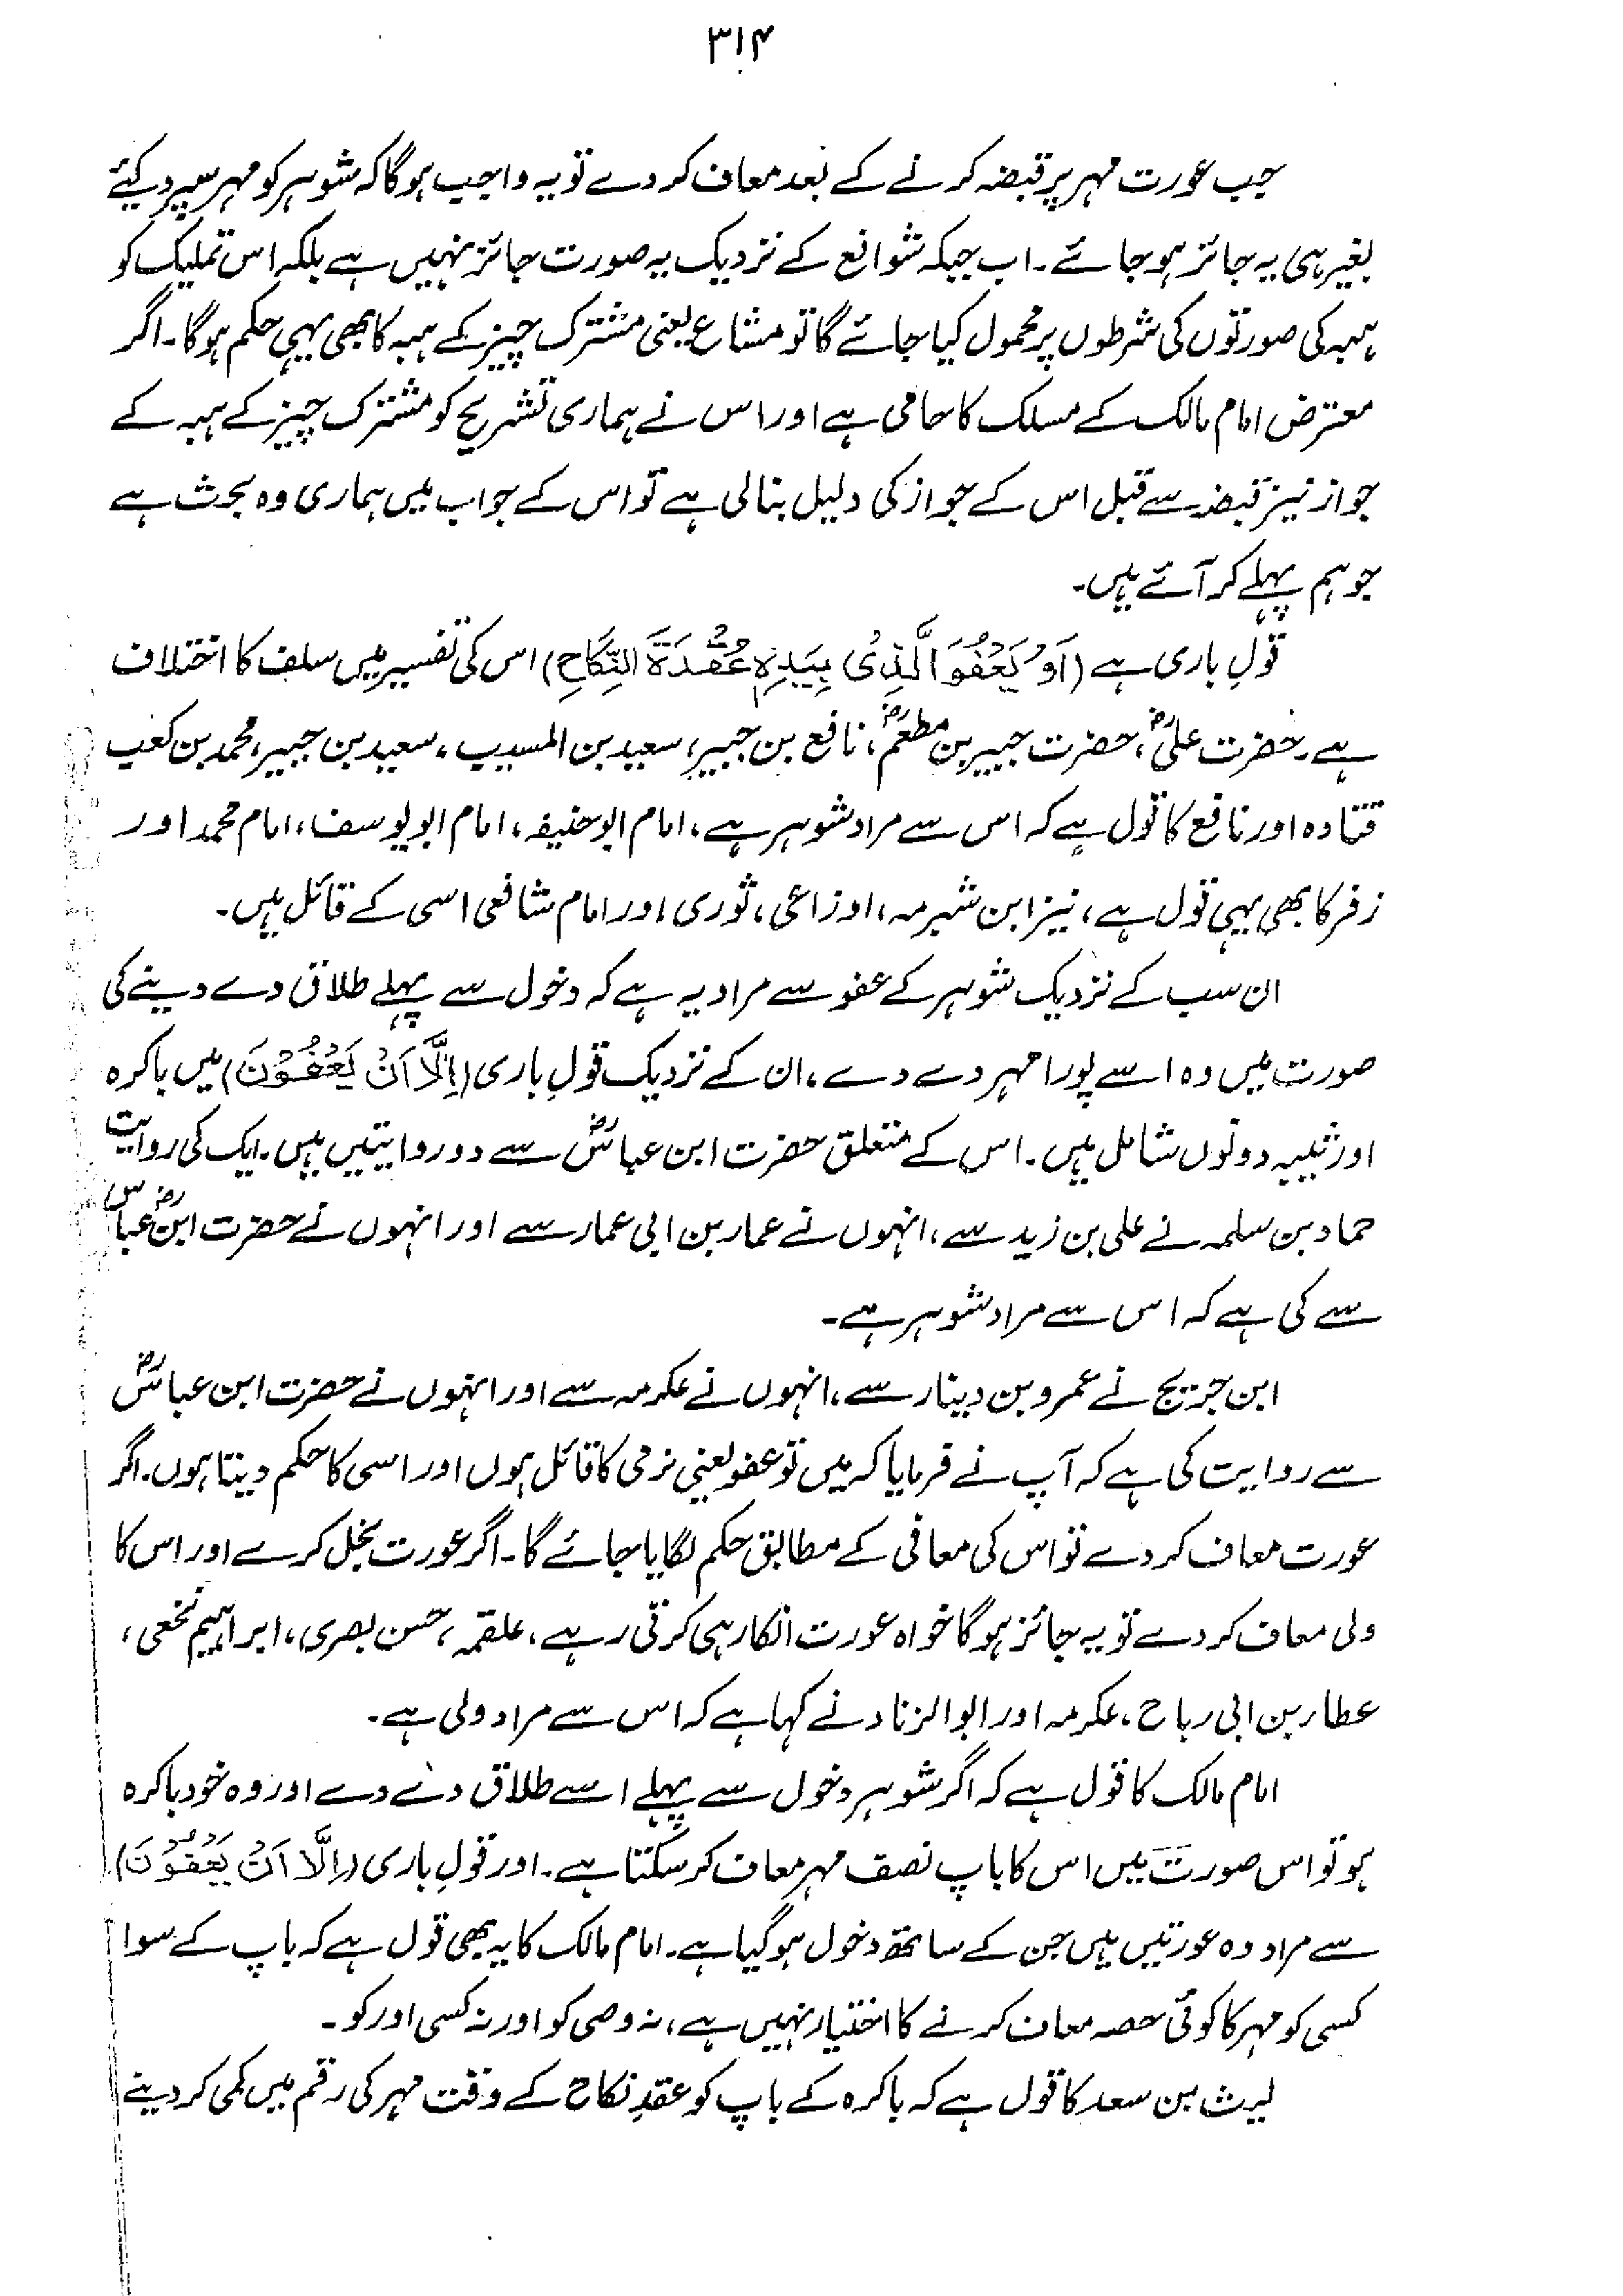 ۳۱۴
جب عورت مہر پر قبضہ کرنے کے بعد معاف کر دے تو یہ واجب ہوگا کہ شوہر کو مہر سپرد کیئے
بغیر ہی یہ جائز ہو جائے۔ اب جبکہ شوافع کے نزدیک یہ صورت جائز نہیں ہے بلکہ اس تملیک کو
ہبہ کی صورتوں کی شرطوں پر محمول کیا جائے گا تو مشاع یعنی مشترک چیز کے ہبہ کا بھی یہی حکم ہوگا۔ اگر
معترض امام مالک کے مسلک کا حامی ہے اور اس نے ہماری تشریح کو مشترک چیز کے ہبہ کے
جواز نیز قبضہ سے قبل اس کے جواز کی دلیل بنالی ہے تو اس کے جواب میں ہماری وہ بحث ہے
جو ہم پہلے کر آئے ہیں۔
قولِ باری ہے (اَوْ یَعْفُوَ الَّذِیْ بِیَدِہٖ عُقْدَةُ النِّکَاحِ) اس کی تفسیر میں سلف کا اختلاف
ہے۔ حضرت علیؓ، حضرت جبیر بن مطعمؓ، نافع بن جبیر، سعید بن المسیب، سعید بن جبیر، محمد بن کعب
قتادہ اور نافع کا قول ہے کہ اس سے مراد شوہر ہے، امام ابوحنیفہ، امام ابویوسف، امام محمد اور
زفر کا بھی یہی قول ہے، نیز ابن شبرمہ، اوزاعی، ثوری اور امام شافعی اسی کے قائل ہیں۔
ان سب کے نزدیک شوہر کے عفو سے مراد یہ ہے کہ دخول سے پہلے طلاق دے دینے کی
صورت میں وہ اسے پورا مہر دے دے، ان کے نزدیک قولِ باری (اِلَّا اَنْ یَعْفُوْنَ) میں باکرہ
اور ثیبہ دونوں شامل ہیں۔ اس کے متعلق حضرت ابن عباسؓ سے دو روایتیں ہیں۔ ایک کی روایت
حماد بن سلمہ نے علی بن زید سے، انہوں نے عمار بن ابی عمار سے اور انہوں نے حضرت ابن عباسؓ
سے کی ہے کہ اس سے مراد شوہر ہے۔
ابن جریج نے عمرو بن دینار سے، انہوں نے عکرمہ سے اور انہوں نے حضرت ابن عباسؓ
سے روایت کی ہے کہ آپ نے فرمایا کہ میں تو عفو یعنی نرمی کا قائل ہوں اور اسی کا حکم دیتا ہوں۔ اگر
عورت معاف کر دے تو اس کی معافی کے مطابق حکم لگایا جائے گا۔ اگر عورت بخل کرے اور اس کا
ولی معاف کر دے تو یہ جائز ہوگا خواہ عورت انکار ہی کرتی رہے، علقمہ، حسن بصری، ابراہیم نخعی،
عطار بن ابی رباح، عکرمہ اور ابوالزناد نے کہا ہے کہ اس سے مراد ولی ہے۔
امام مالک کا قول ہے کہ اگر شوہر دخول سے پہلے اسے طلاق دے دے اور وہ خود باکرہ
ہو تو اس صورت میں اس کا باپ نصف مہر معاف کر سکتا ہے۔ اور قولِ باری (اِلَّا اَنْ یَعْفُوْنَ)
سے مراد وہ عورتیں ہیں جن کے ساتھ دخول ہو گیا ہے۔ امام مالک کا یہ بھی قول ہے کہ باپ کے سوا
کسی کو مہر کا کوئی حصہ معاف کرنے کا اختیار نہیں ہے، نہ وصی کو اور نہ کسی اور کو۔
لیث بن سعد کا قول ہے کہ باکرہ کے باپ کو عقدِ نکاح کے وقت مہر کی رقم میں کمی کر دینے